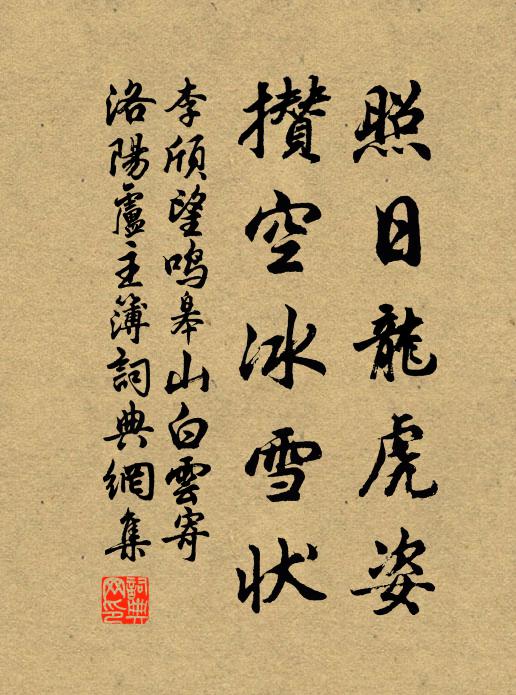 照日龍虎姿
攢空冰雪狀
李頎望鳴皋山白雲寄
洛陽盧主簿詞典網集
詞典
网印